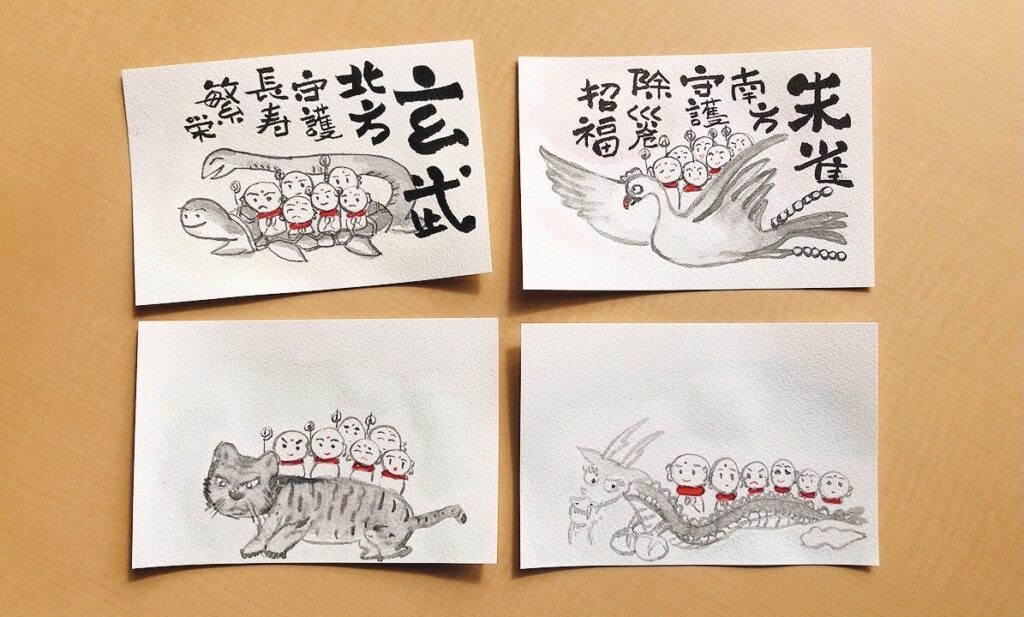 玄武
北方
守護
長寿
繁栄
朱雀
南方
守護
除災
招福